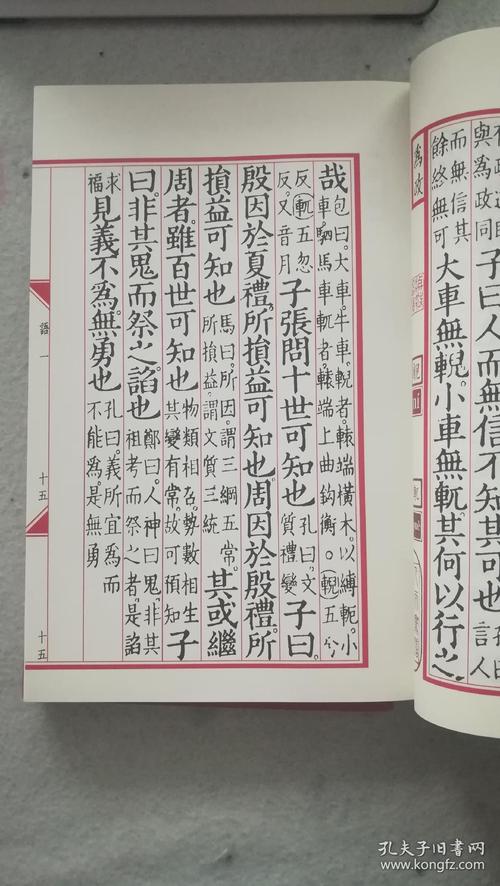 與為政同
子曰人而無信不知其可也
孔曰
言人
而無信其
餘終無可
大車無輗。小車無軏。其何以行之
為政
哉
包曰。大車。牛車。輗者。轅端橫木。以縛軛。小
車。駟馬車。軏者。轅端上曲鈎衡。○輗五兮
反。軏五忽
反。又音月
子張問十世可知也
孔曰。文
質禮變
子曰。
殷因於夏禮。所損益可知也。周因於殷禮。所
損益可知也
馬曰。所因。謂三綱五常。
所損益。謂文質三統
其或繼
周者。雖百世可知也
物類相召。勢數相生
其變有常。故可預知
子
曰。非其鬼而祭之。諂也
鄭曰。人神曰鬼。非其
祖考而祭之者。是諂
求
福
見義不為。無勇也
孔曰。義所宜為。而
不能為。是無勇
語一
十五
十五
孔夫子旧书网
www.kongfz.com